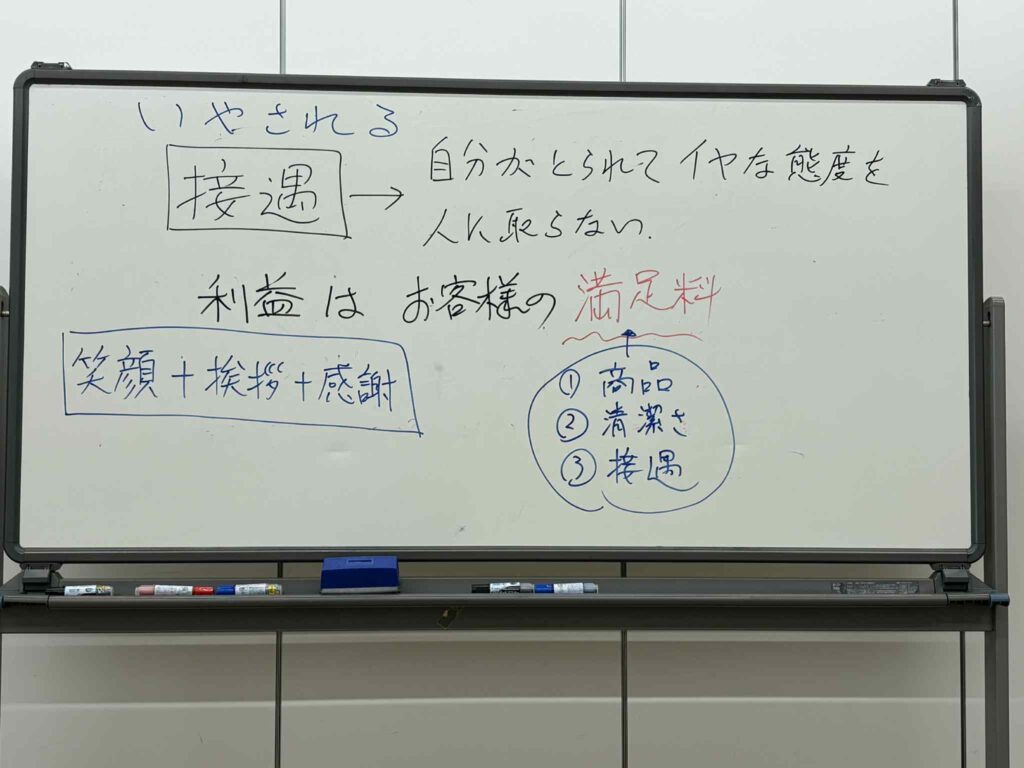 いやされる
接遇 → 自分がとられてイヤな態度を
人に取らない.
利益は お客様の 満足料
笑顔+挨拶+感謝
① 商品
② 清潔さ
③ 接遇